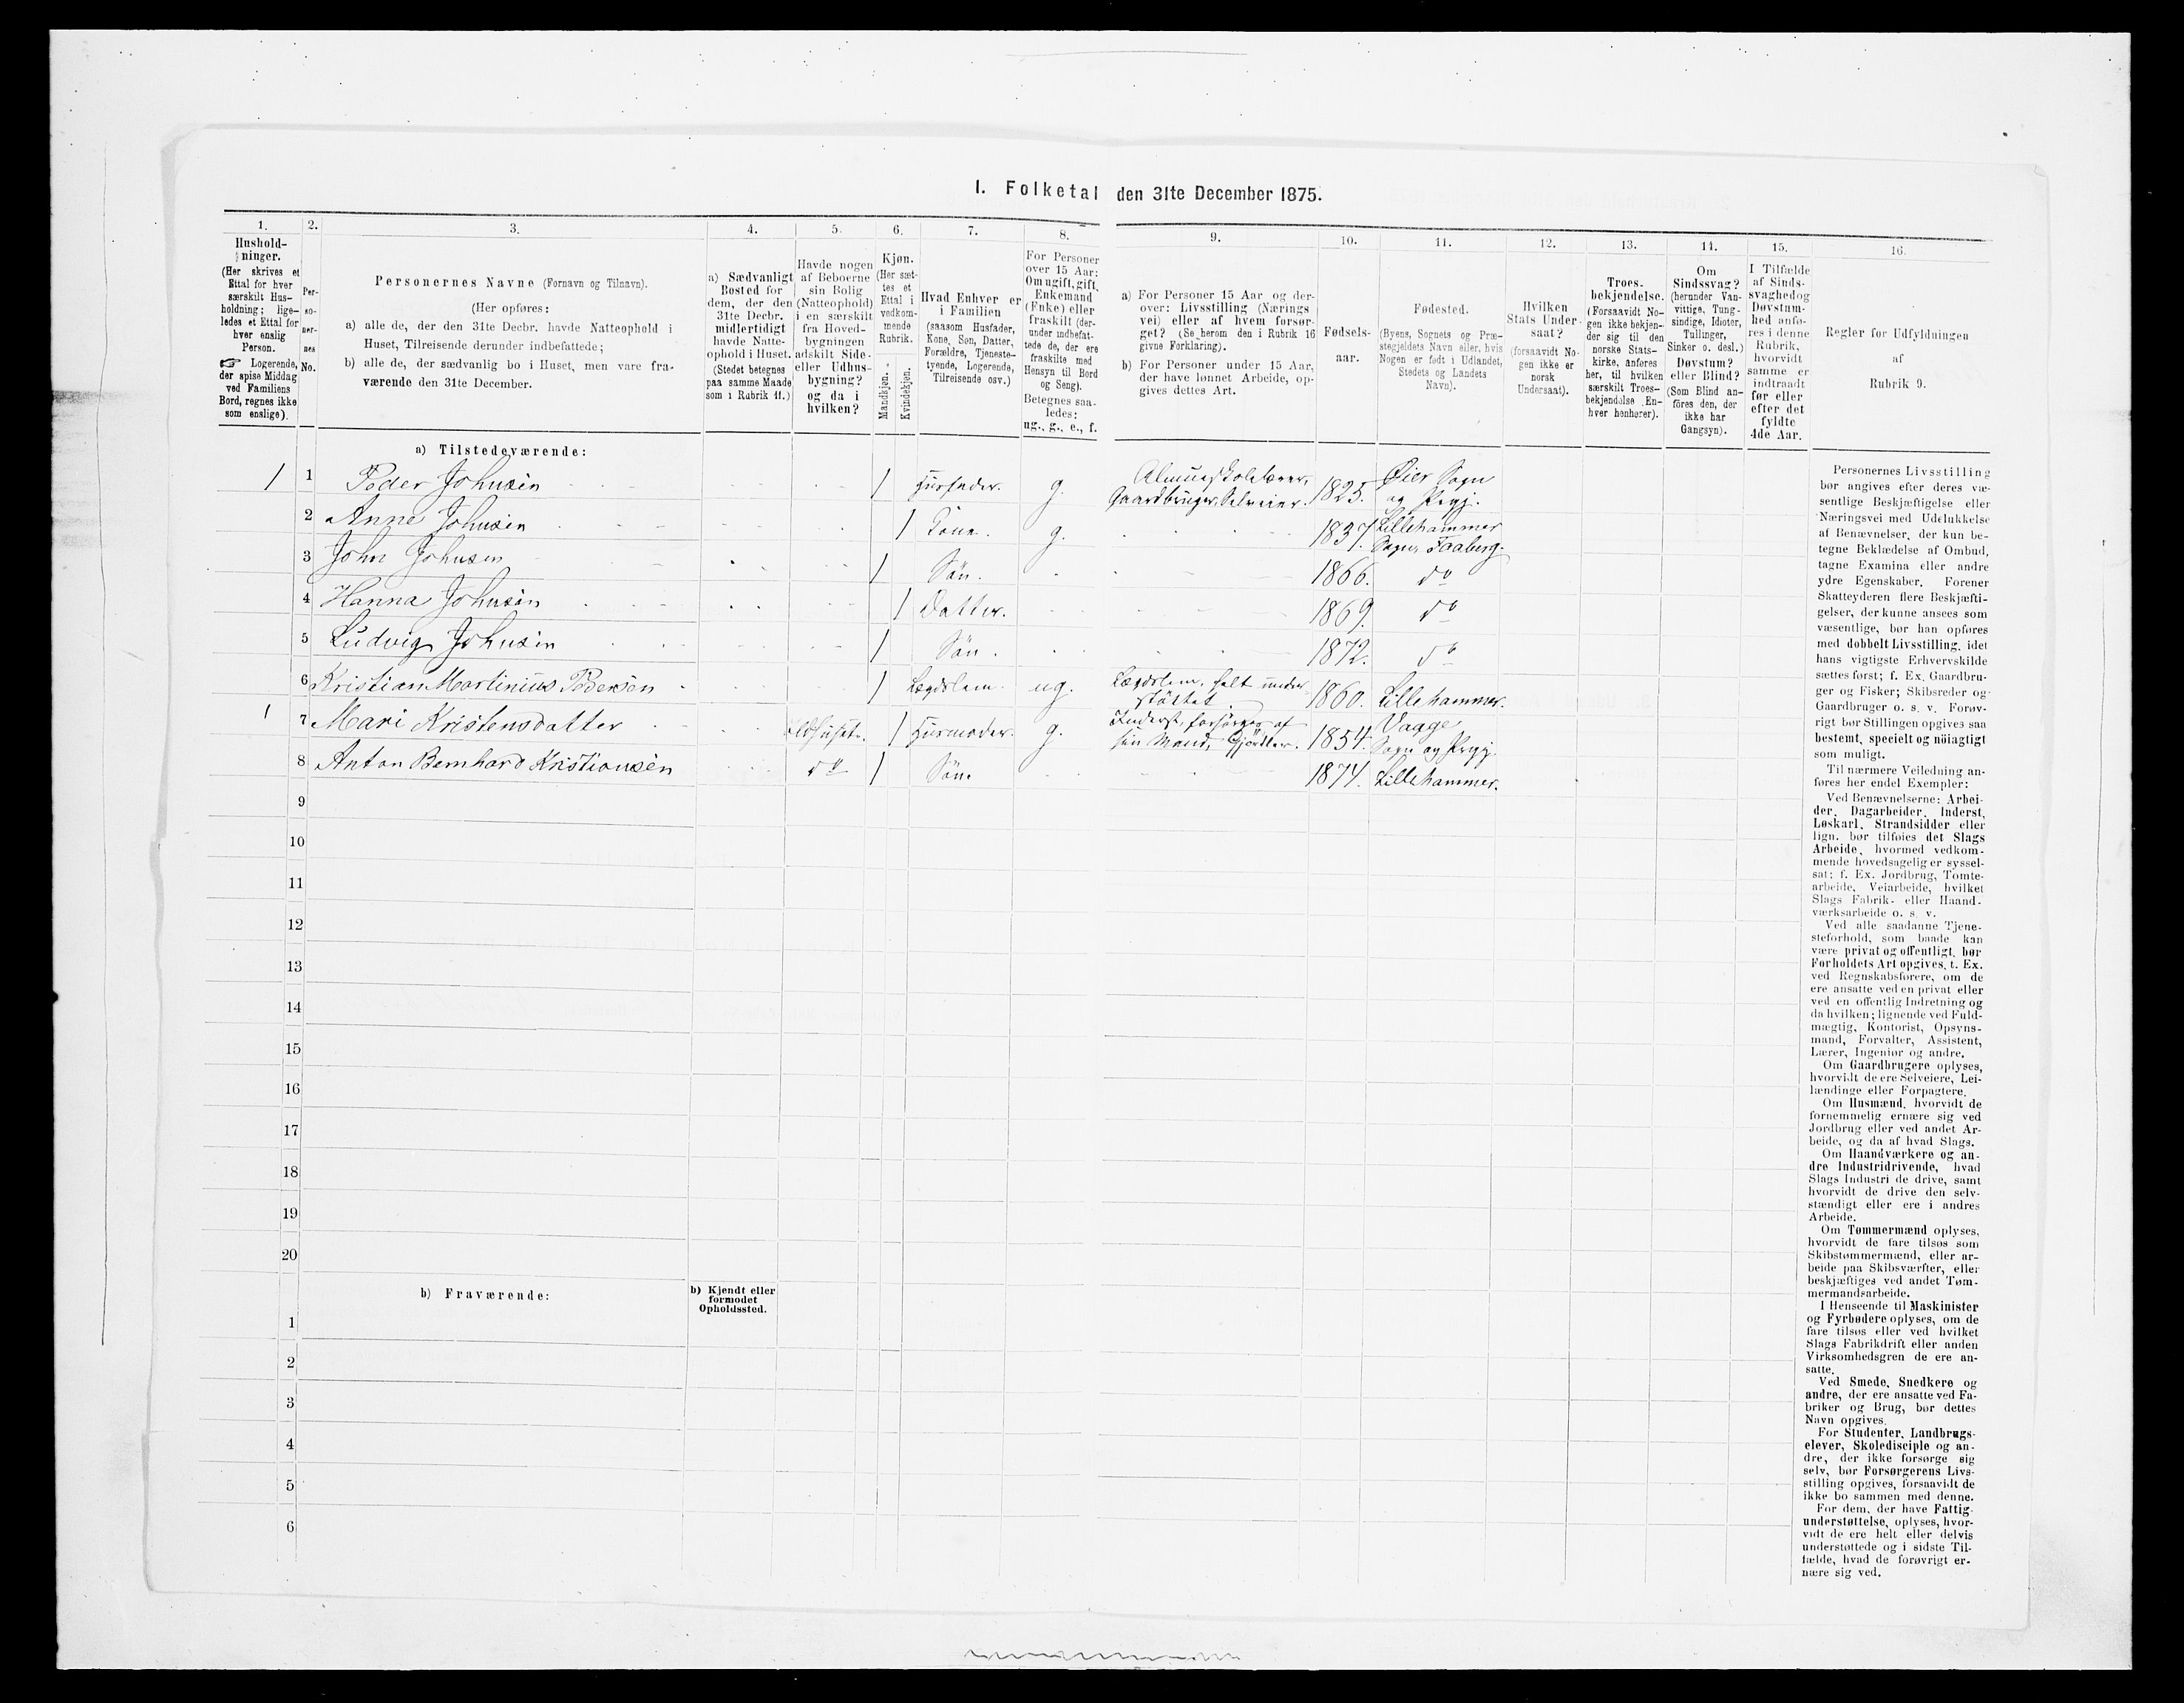 I. Folketal den 31te December 1875.
1.
Hushold-
ninger.
(Her skrives et
Ettal for hver
særskilt Hus-
holdning; lige-
ledes et Ettal for
hver enslig
Person.
☞ Logerende,
der spise Middag
ved Familiens
Bord, regnes ikke
som enslige).
2.
Per-
so-
ner-
nes
No.
3.
Personernes Navne (Fornavn og Tilnavn).
(Her opføres:
a) alle de, der den 31te Decbr. havde Natteophold i
Huset, Tilreisende derunder indbefattede;
b) alle de, der sædvanlig bo i Huset, men vare fra-
værende den 31te December.
4.
a) Sædvanligt
Bosted for
dem, der den
31te Decbr.
midlertidigt
havde Natte-
ophold i Huset.
(Stedet betegnes
paa samme Maade
som i Rubrik 11.)
5.
Havde nogen
af Beboerne
sin Bolig
(Natteophold)
i en særskilt
fra Hoved-
bygningen
adskilt Side-
eller Udhus-
bygning?
og da i
hvilken?
6.
Kjøn.
(Her sæt-
tes et
Ettal i
vedkom-
mende
Rubrik.
Mandkjøn.
Kvindekjøn.
7.
Hvad Enhver er
i Familien
(saasom Husfader,
Kone, Søn, Datter,
Forældre, Tjeneste-
tyende, Logerende,
Tilreisende osv.)
8.
For Personer
over 15 Aar:
Om ugift, gift,
Enkemand
(Enke) eller
fraskilt (der-
under indbefat-
tede de, der ere
fraskilte med
Hensyn til Bord
og Seng).
Betegnes saa-
ledes:
ug., g., e., f.
9.
a) For Personer 15 Aar og der-
over: Livsstilling (Nærings
vei) eller af hvem forsør-
get? (Se herom den i Rubrik 16
givne Forklaring).
b) For Personer under 15 Aar,
der have lønnet Arbeide, op-
gives dettes Art.
10.
Fødsels-
aar.
11.
Fødested.
(Byens, Sognets og Præ-
stegjeldets Navn eller, hvis
Nogen er født i Udlandet,
Stedets og Landets
Navn).
12.
Hvilken
Stats Under-
saat?
(forsaavidt No-
gen ikke er
norsk
Undersaat).
13.
Troes-
bekjendelse.
(Forsaavidt No-
gen ikke bekjen-
der sig til den
norske Stats-
kirke, anføres
her, til hvilken
særskilt Troes-
bekjendelse En-
hver henhører).
14.
Om
Sindssvag?
(herunder Van-
vittige, Tung-
sindige, Idioter,
Tullinger,
Sinker o. desl.)
Døvstum?
eller Blind?
(Som Blind an-
føres den, der
ikke har
Gangsyn).
15.
I Tilfælde
af Sinds-
svaghed og
Døvstum-
hed anfø-
res i denne
Rubrik,
hvorvidt
samme er
indtraadt
før eller
efter det
fyldte
4de Aar.
16.
Regler for Udfyldningen
af
Rubrik 9.
a) Tilstedeværende:
1 1 Peder Johnsen 1 Husfader. g. Almueskolelærer, Gaardbruger, Selveier. 1825. Øier Sogn og Prgj.
2 Anne Johnsen 1 Kone. g. 1837. Lillehammer Sogn, Faaberg.
3 John Johnsen 1 Søn. 1866. do
4 Hanna Johnsen 1 Datter. 1869. do
5 Ludvig Johnsen 1 Søn. 1872. do
6 Kristian Martinius 1 Lægdslem. ug. Lægdslem, helt under støttet. 1860. Lillehammer.
1 7 Mari Kristensdatter Ildhuset. 1 Husmoder. g. Inderst, forsørges af sin Mand, 1854. Vaage Sogn og Prgj.
8 Anton Bernhard Kristiansen do 1 Søn. 1874. Lillehammer.
9
10
11
12
13
14
15
16
17
18
19
20
b) Fraværende:
b) Kjendt eller
formodet
Opholdssted.
1
2
3
4
5
6
Personernes Livsstilling
bør angives efter deres væ-
sentlige Beskjæftigelse eller
Næringsvei med Udelukkelse
af Benævnelser, der kun be-
tegne Beklædelse af Ombud,
tagne Examina eller andre
ydre Egenskaber. Forener
Skatteyderen flere Beskjæfti-
gelser, der kunne ansees som
væsentlige, bør han opføres
med dobbelt Livsstilling, idet
hans vigtigste Erhvervskilde
sættes først; f. Ex. Gaardbru-
ger og Fisker; Skibsreder og
Gaardbruger o. s. v. Forøv-
rigt bør Stillingen opgives saa
bestemt, specielt og nøiagtigt
som muligt.
Til nærmere Veiledning an-
føres her endel Exempler:
Ved Benævnelserne: Arbei-
der, Dagarbeider, Inderst,
Løskarl, Strandsidder eller
lign. bør tilføies det Slags
Arbeide, hvormed vedkom-
mende hovedsagelig er syssel-
sat; f. Ex. Jordbrug, Tomte-
arbeide, Veiarbeide, hvilket
Slags Fabrik- eller Haand-
værksarbeide o. s. v.
Ved alle saadanne Tjene-
steforhold, som baade kan
være privat og offentligt, bør
Forholdets Art opgives, t. Ex.
ved Regnskabsførere, om de
ere ansatte ved en privat eller
ved en offentlig Indretning og
da hvilken; lignende ved Fuld-
mægtig, Kontorist, Opsyns-
mand, Forvalter, Assistent,
Lærer, Ingeniør og andre.
Om Gaardbrugere oplyses,
hvorvidt de ere Selveiere, Lei-
lændinge eller Forpagtere.
Om Husmænd, hvorvidt de
fornemmelig ernære sig ved
Jordbrug eller ved andet Ar-
beide, og da af hvad Slags.
Om Haandværkere og an-
dre Industridrivende, hvad
Slags Industri de drive, samt
hvorvidt de drive den selv-
stændigt eller ere i andres
Arbeide.
Om Tømmermænd oplyses,
hvorvidt de fare tilsøs som
Skibstømmermænd, eller ar-
beide paa Skibsværfter, eller
beskjæftiges ved andet Tøm-
mermandsarbeide.
I Henseende til Maskinister
og Fyrbødere oplyses, om de
fare tilsøs eller ved hvilket
Slags Fabrikdrift eller anden
Virksomhedsgren de ere an-
satte.
Ved Smede, Snedkere og
andre, der ere ansatte ved Fa-
briker og Brug, bør dettes
Navn opgives.
For Studenter, Landbrugs-
elever, Skoledisciple og an-
dre, der ikke forsørge sig
selv, bør Forsørgerens Livs-
stilling opgives, forsaavidt de
ikke bo sammen med denne.
For dem, der have Fattig-
understøttelse, oplyses, hvor-
vidt de ere helt eller delvis
understøttede og i sidste Til-
fælde, hvad de forøvrigt er-
nære sig ved.